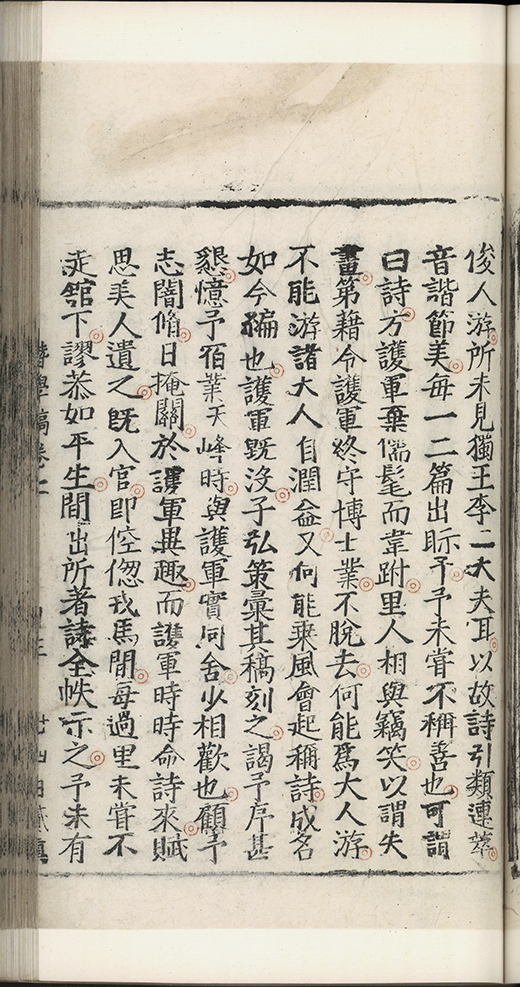 俊人游所未見獨王李二大夫耳以故詩引類連萃
音諧節美每一二篇出眎予予未甞不稱善也可謂
曰詩方護軍棄儒髦而韋跗里人相與竊笑以謂失
畫第藉令護軍終守博士業不脫去何能爲大人游
不能游諸大人自潤益又何能乘風會起稱詩成名
如今猵也護軍旣沒子弘策彙其稿刻之謁予序甚
懇憶予宿業天峰時與護軍實同舍少相歡也顧予
志闇脩日掩關於護軍異趣而護軍時時命詩來賦
思美人遺之旣入官即倥偬戎馬間每過里未甞不
走舘下謬恭如平生間出所著詩全帙示之予未有